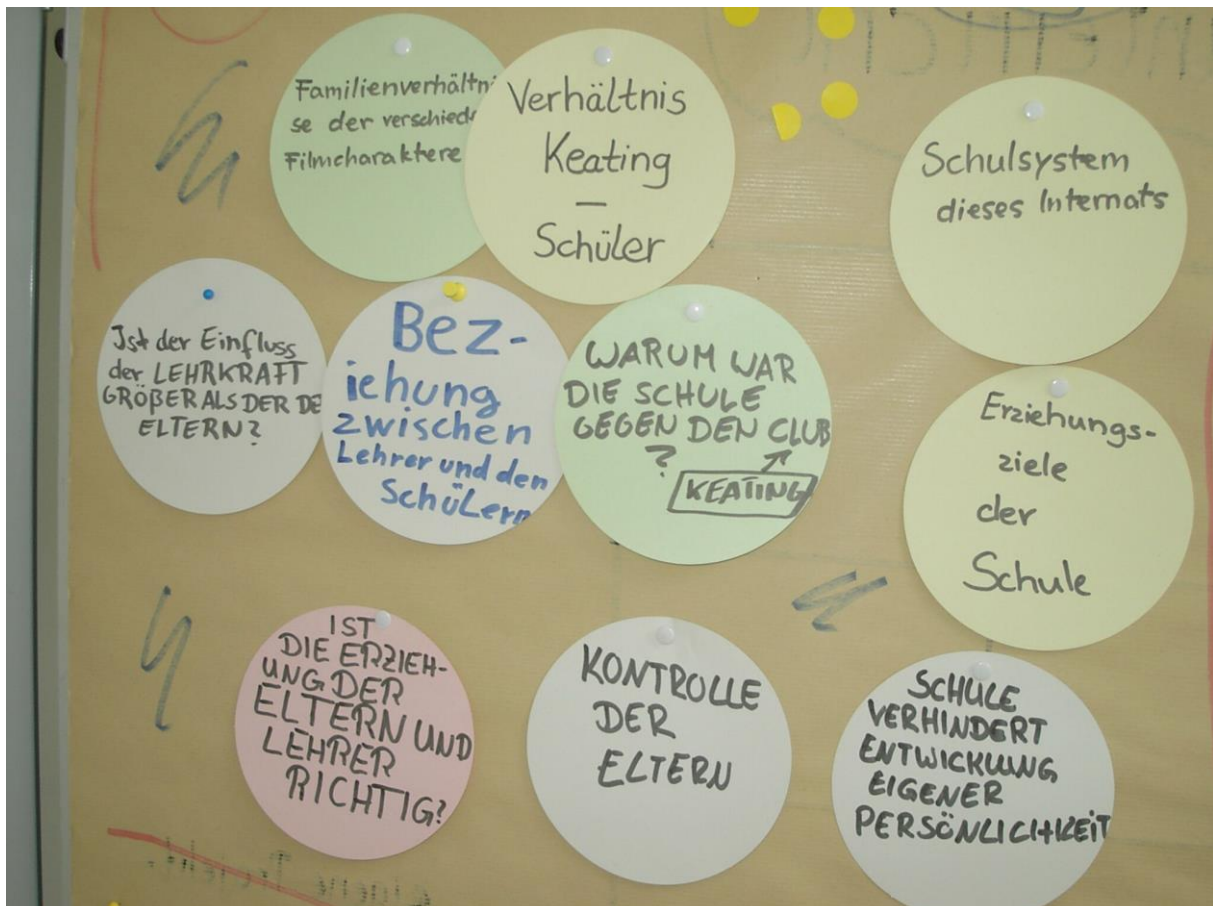 Familienverhältni
se der verschied
Filmcharaktere
Verhältnis
Keating
–
Schüler
Schulsystem
dieses Internats
Ist der Einfluss
der LEHRKRAFT
GRÖßER ALS DER DE
ELTERN?
Bez-
iehung
zwischen
Lehrer und den
SchüLern
WARUM WAR
DIE SCHULE
GEGEN DEN CLUB
?
KEATING
Erziehungs-
ziele
der
Schule
IST
DIE ERZIEH-
UNG DER
ELTERN UND
LEHRER
RICHTIG?
KONTROLLE
DER
ELTERN
SCHULE
VERHINDERT
ENTWICKLUNG
EIGENER
PERSÖNLICHKEIT